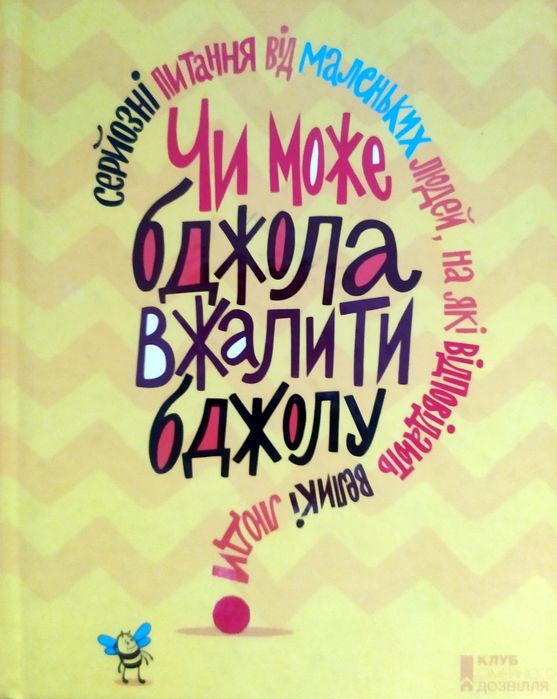 серйозні питання від маленьких людей, на які відповідають великі люди
Чи може
бджола
вжалити
бджолу
КЛУБ
СІМЕЙНОГО
ДОЗВІЛЛЯ